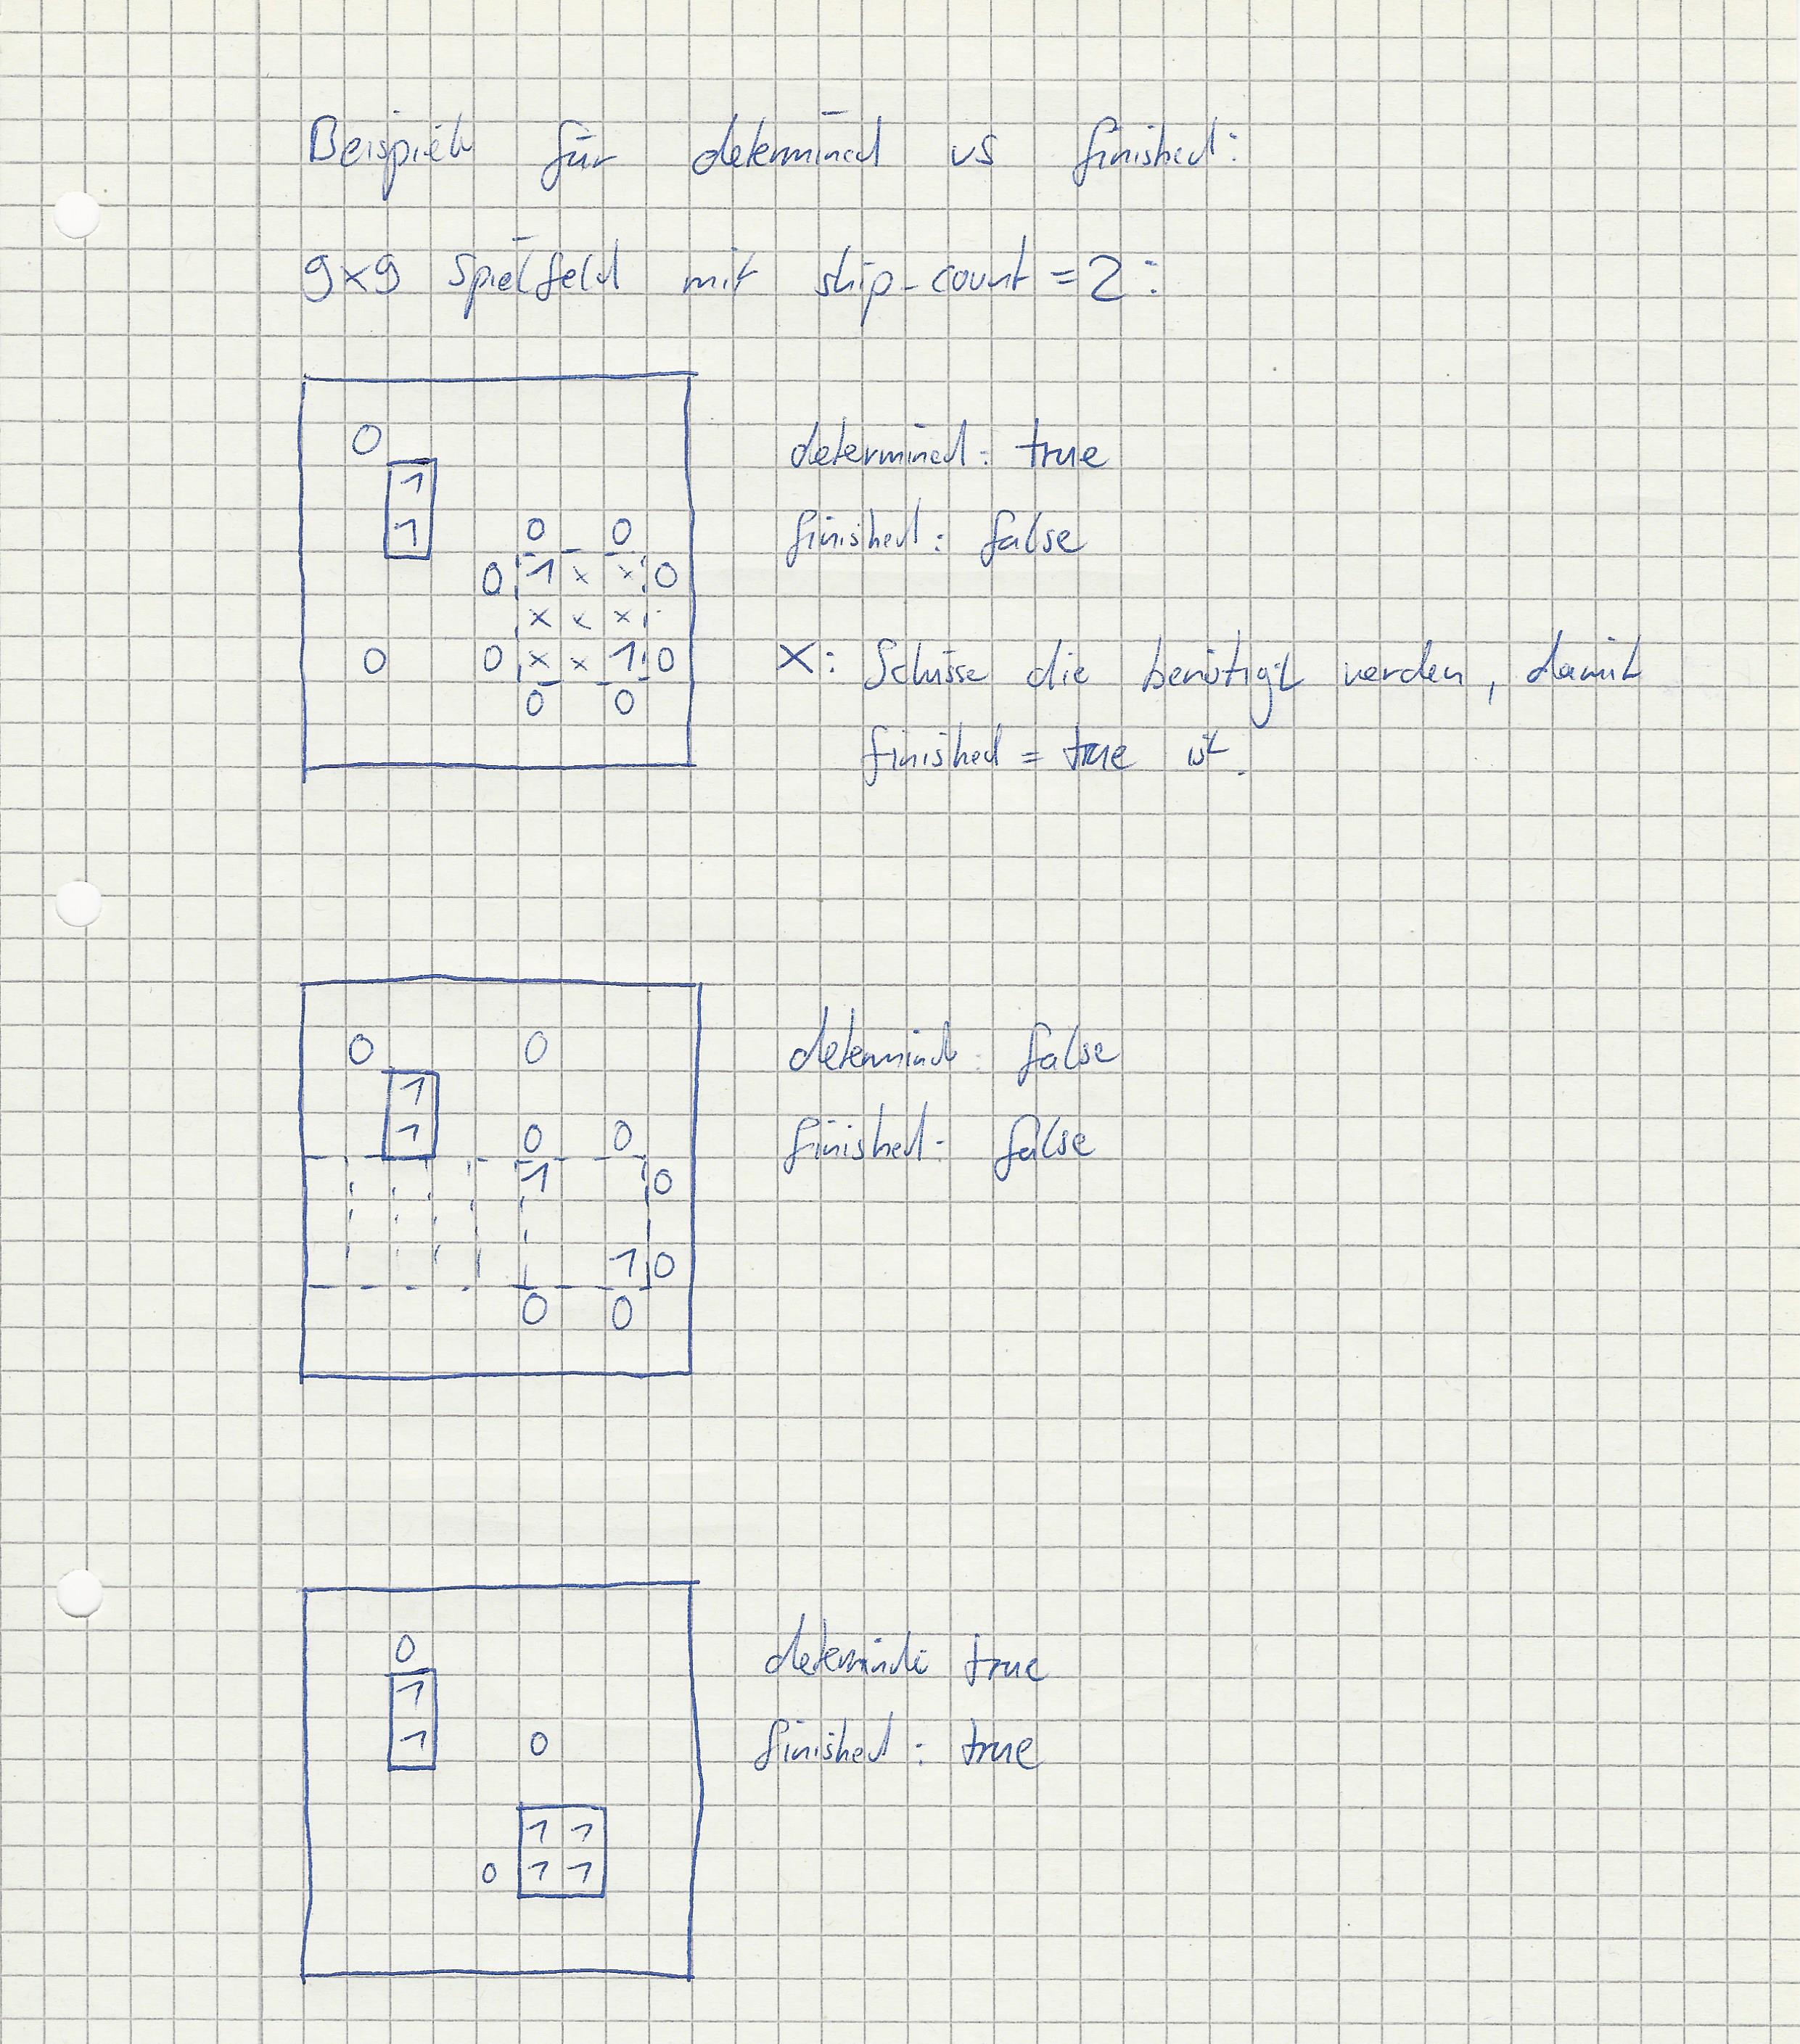 Beispiele für determined vs finished:
9x9 Spielfeld mit ship-count = 2:
0
1
1 0 0
0 1 x x 0
x x x
0 0 x x 1 0
0 0
determined: true
finished: false
X: Schüsse die benötigt werden, damit
finished = true ist.
0 0
1
1 0 0
1 0
1 0
0 0
determined: false
finished: false
0
1
1 0
1 1
0 1 1
determined: true
finished: true